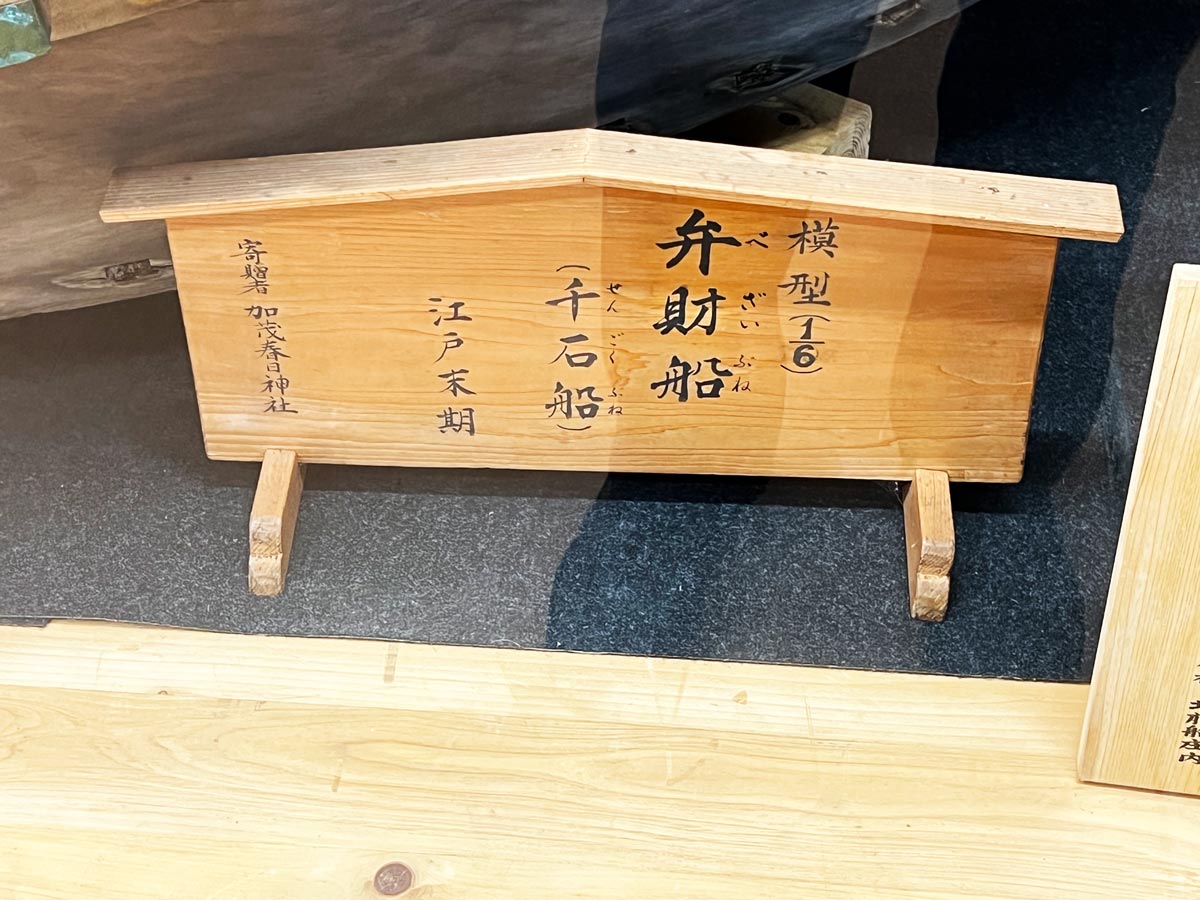 模型(1/6)
弁財船
べざいぶね
(千石船)
せんごくぶね
江戸末期
寄贈者 加茂春日神社